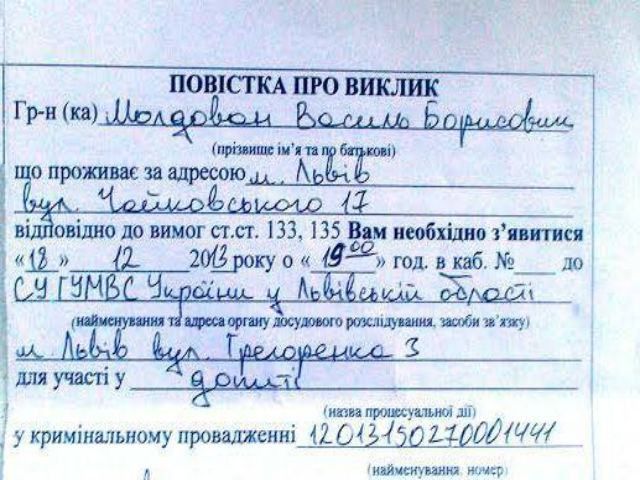 ПОВІСТКА ПРО ВИКЛИК
Гр-н (ка) Молдован Василь Борисович
(прізвище ім'я та по батькові)
що проживає за адресою м. Львів
вул. Чайковського 17
відповідно до вимог ст.ст. 133, 135 Вам необхідно з'явитися
«18» 12 2013 року о «19 00» год. в каб. №____ до
СУ ГУМВС України у Львівській області
(найменування та адреса органу досудового розслідування, засоби зв'язку)
м Львів вул. Грегоренка 3
для участі у допиті
(назва процесуальної дії)
у кримінальному провадженні 12013150270001441
(найменування, номер)